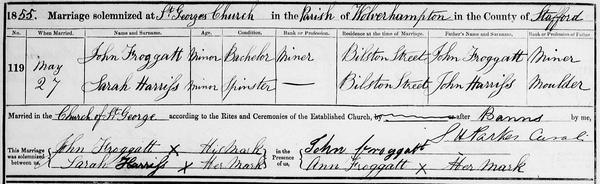 1855. Marriage solemnized at St Georges Church in the Parish of Wolverhampton in the County of Stafford
No. When Married. Name and Surname. Age. Condition. Rank or Profession. Residence at the time of Marriage. Father's Name and Surname. Rank or Profession of Father
119 May 27 John Froggatt Minor Bachelor Miner Bilston Street John Froggatt Miner
Sarah Harriss Minor Spinster — Bilston Street John Harriss Moulder
Married in the Church of St George according to the Rites and Ceremonies of the Established Church, by after Banns by me,
S H Parkes Curate
This Marriage was solemnized between us, John Froggatt X His Mark in the Presence of us, John Froggatt
Sarah Harriss X Her Mark Ann Froggatt X Her Mark